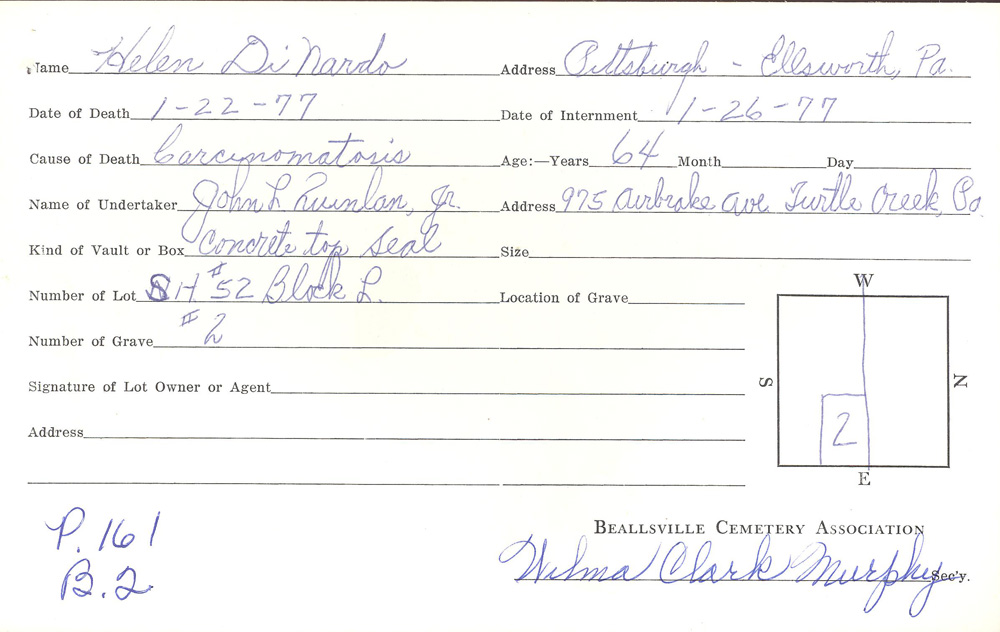 Name Helen DiNardo Address Pittsburgh - Ellsworth, Pa.
Date of Death 1-22-77 Date of Internment 1-26-77
Cause of Death Carcynomatosis Age:—Years 64 Month Day
Name of Undertaker John L Quinlan, Jr. Address 975 Airbrake Ave Turtle Creek, Pa
Kind of Vault or Box Concrete top seal Size
Number of Lot H #52 Block L. Location of Grave
Number of Grave #2
Signature of Lot Owner or Agent
Address
W
S N
2
E
P. 161
B. 2
Beallsville Cemetery Association
Wilma Clark Murphy Sec'y.